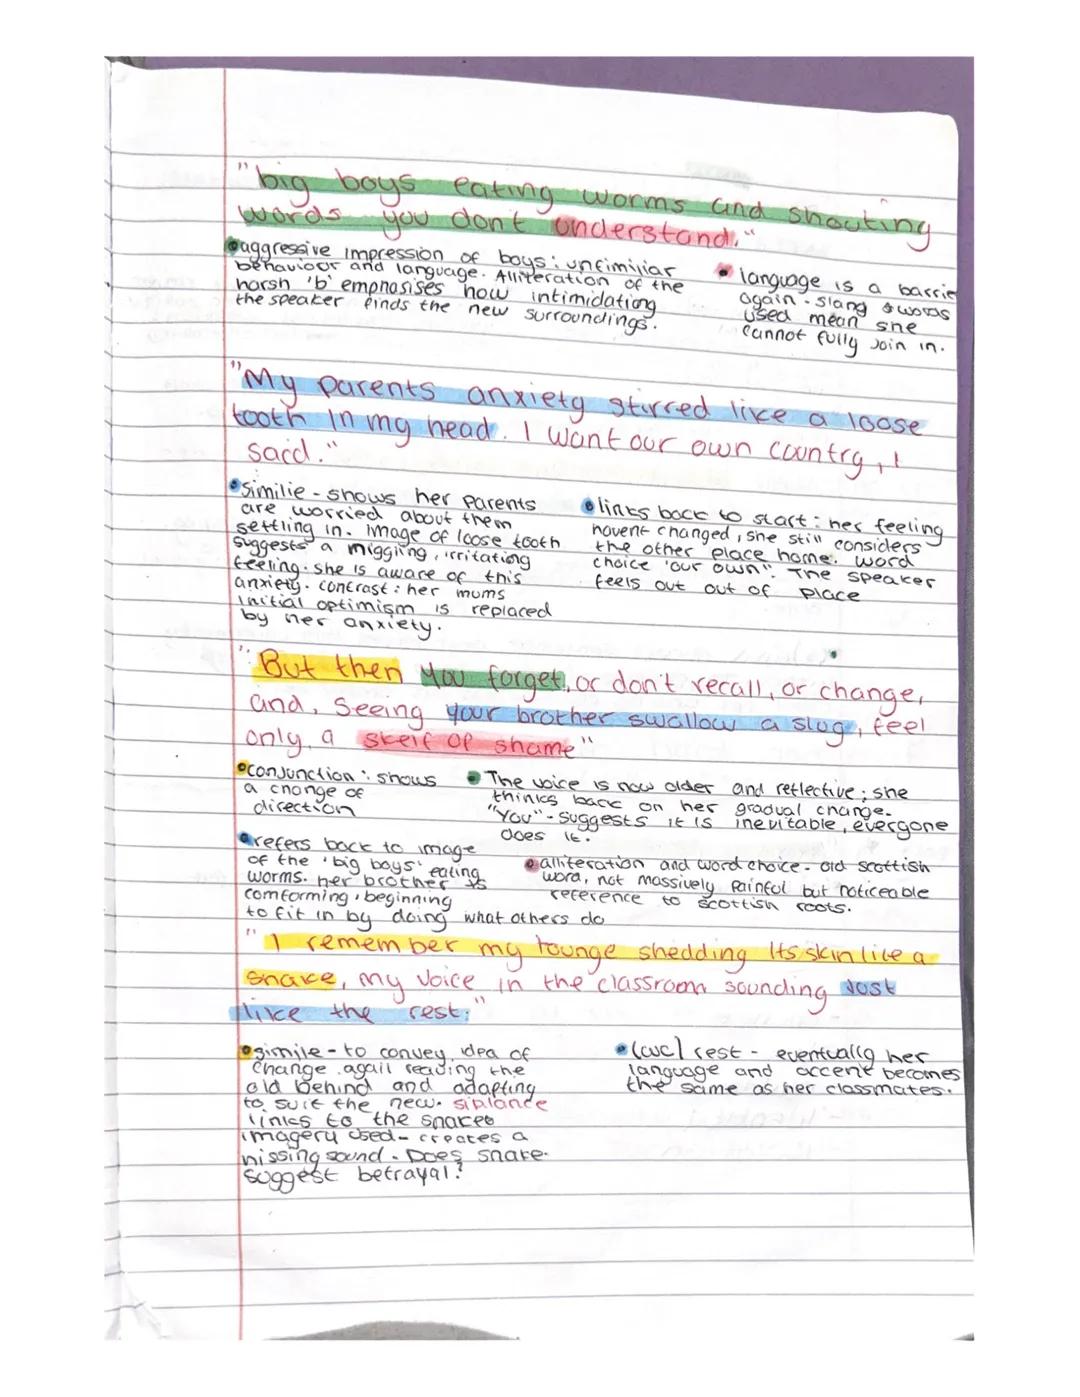 "big boys eating worms and shouting
words you don't understand."
aggressive impression of boys: unfimiliar
behaviour and language. Alliteration of the
harsh 'b' emphasises how intimidationg
the speaker finds the new surroundings.
language is a barrie
again - slang & words
used mean she
cannot fully join in.
"My parents anxiety stirred like a loose
tooth in my head. I want our own country, I
said."
Similie - shows her parents
are worried about them
settling in. image of loose tooth
suggests a niggling, irritationg
feeling. she is aware of this
anxiety. contrast: her mums
initial optimism is replaced
by her anxiety.
links back to start: her feeling
havent changed, she still considers
the other place home. word
choice 'our own". The speaker
feels out out of place
"But then you forget, or don't recall, or change,
and, seeing your brother swallow a slug, feel
only, a skelf of shame"
conjunction: shows
a change of
direction
The voice is now older and reflective; she
thinks back on her gradual change.
"You" - suggests it is inevitable, everyone
does it.
refers back to image
of the 'big boys' eating
worms. her brother is
comforming, beginning
to fit in by doing what others do
alliteration and word choice - old scottish
word, not massively painful but noticeable
reference to scottish roots.
"I remember my tounge shedding its skin like a
snake, my voice in the classroom sounding Just
like the rest."
simile - to convey idea of
change again
old behind and adapting
to suit the new. siblance
links to the snakes
imagery used - creates a
hissing sound. Does snake
suggest betrayal?
rest - eventually her
language and accent becomes
the same as her classmates.